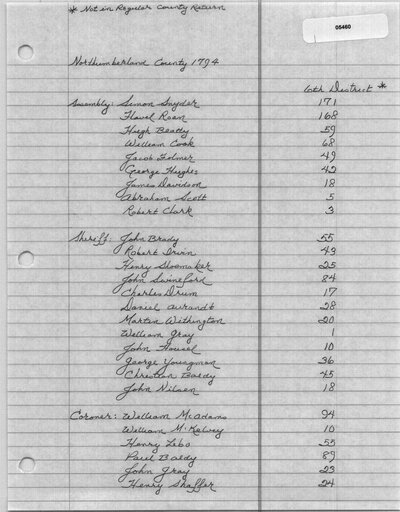 * Not in Regular County Return
05460
Northumberland County 1794
6th District *
Assembly: Simon Snyder 171
Flavel Roan 168
Hugh Beatty 59
William Cook 68
Jacob Folmer 49
George Hughes 42
James Davidson 18
Abraham Scott 5
Robert Clark 3
Sheriff: John Brady 55
Robert Irwin 43
Henry Shoemaker 25
John Swineford 84
Charles Drum 17
Daniel Aurandt 28
Martin Withington 20
William Gray 1
John Housel 10
George Youngman 36
Christian Baldy 45
John Nilsen 18
Coroner: William McAdams 94
William McKelvey 10
Henry Lebo 55
Paul Baldy 89
John Gray 23
Henry Shaffer 24